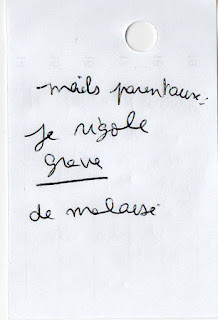 mails parentaux.
je rigole
grave
de malaise